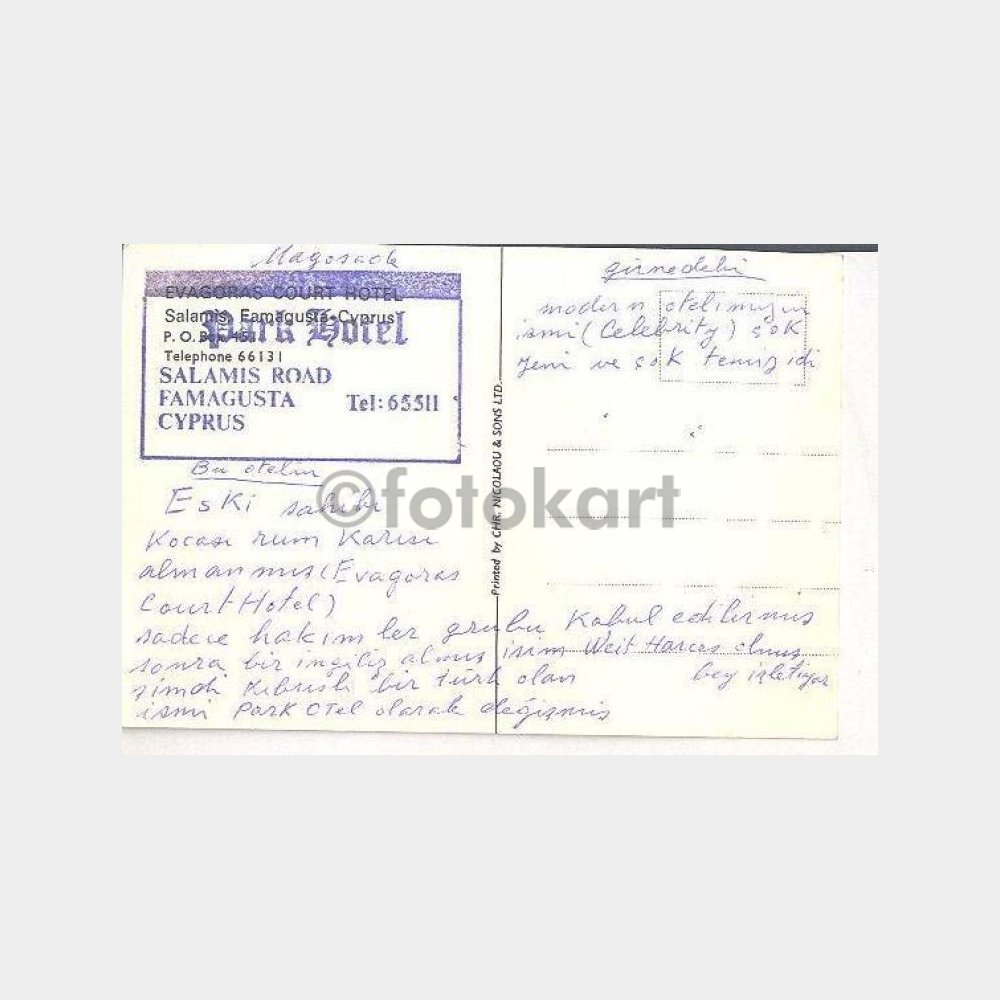 Magosada
EVAGORAS COURT HOTEL
Salamis, Famagusta-Cyprus
Park Hotel
P. O. Box
Telephone 66131
SALAMIS ROAD
FAMAGUSTA Tel: 65511
CYPRUS
Bu otelin
Eski sahibi
Kocası rum Karısı
almanmış (Evagoras
Court Hotel)
sadece hakimler grubu Kabul edilirmiş
sonra bir ingiliz almış isim olmuş
şimdi kıbrıslı bir türk olan bey işletiyor
ismi Park Otel olarak değişmiş
Printed by CHR. NICOLAOU & SONS LTD.
girnedeki
modern otelimizin
ismi (Celebrity) çok
yeni ve çok temiz idi
©fotokart